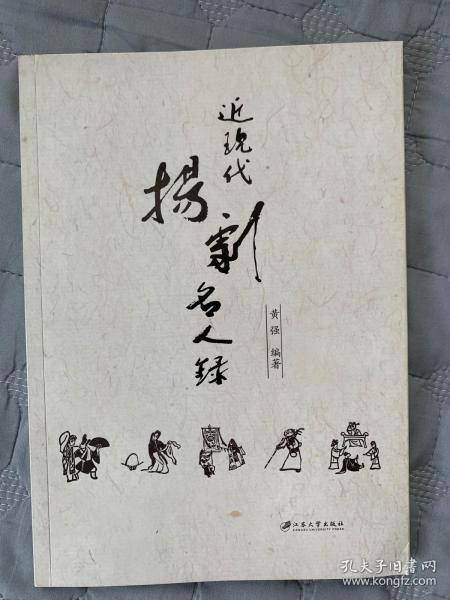 近现代
揚剧名人録
黄强 编著
江苏大学出版社
JIANGSU UNIVERSITY PRESS
孔夫子旧书网
kongfz.com